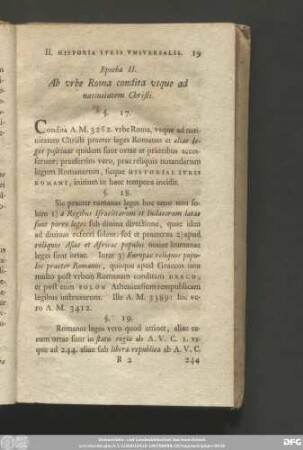 II. HISTORIA IVRIS VNIVERSALIS. 19
Epocha II.
Ab vrbe Roma condita vsque ad
natiuitatem Christi.
§. 17.
Condita A. M. 3262. vrbe Roma, vsque ad nati-
uitatem Christi praeter leges Romanas et aliae le-
ges positiuae quaedam suae ortae et prioribus acces-
serunt; praesertim vero, prae reliquis notandarum
legum Romanarum, sicque HISTORIAE IVRIS
ROMANI, initium in haec tempora incidit.
§. 18.
Sic praeter romanas leges hoc aeuo non so-
lum 1) a Regibus Israelitarum et Iudaeorum latae
sunt leges sub diuina directione, quae ideo
ad diuinas referri solent: sed et praeterea 2) apud
reliquos Asiae et Africae populos nouae humanae
leges sunt ortae. 3) Europae reliquos popu-
los praeter Romanos, quoque apud Graecos non
multo post vrbem Romanam conditam DRACO,
et post eum SOLON Atheniensium rempublicam
legibus instruxerunt. Ille A. M. 3389: hic ve-
ro A. M. 3412.
§. 19.
Romanas leges vero quod attinet, aliae ea-
rum ortae sunt in statu regio ab A. V. C. 1. vs-
que ad 244. aliae sub libera republica ab A. V. C.
B 2 244